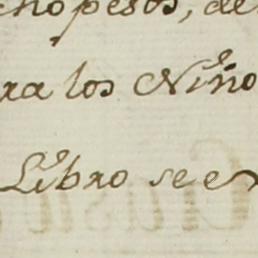 cho pesos, de
ra los Niño
Libro se en